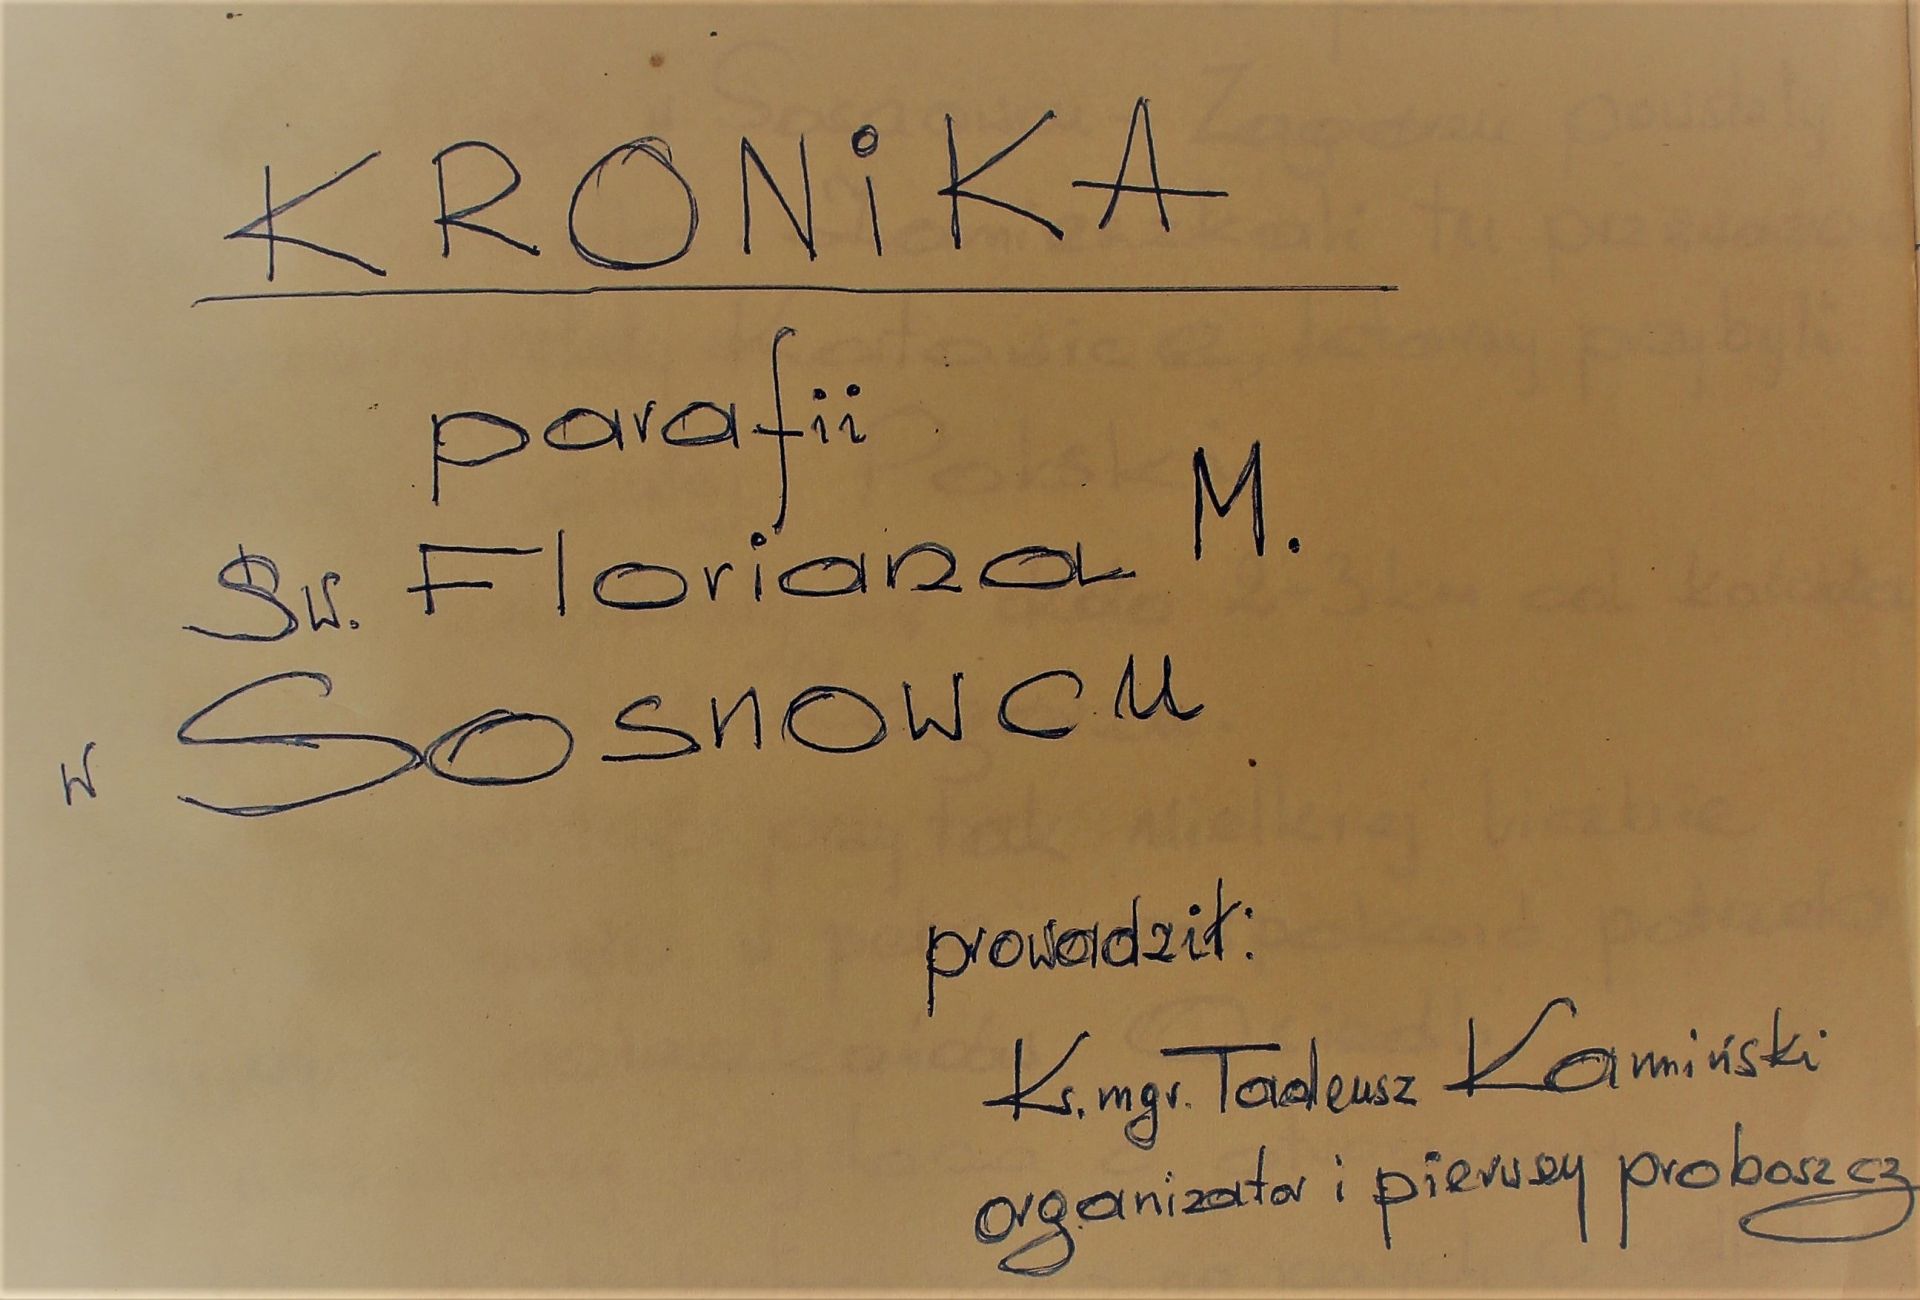 KRONiKA
parafii
Św. Floriana M.
w Sosnowcu
prowadził:
Ks. mgr. Tadeusz Kamiński
organizator i pierwszy proboszcz